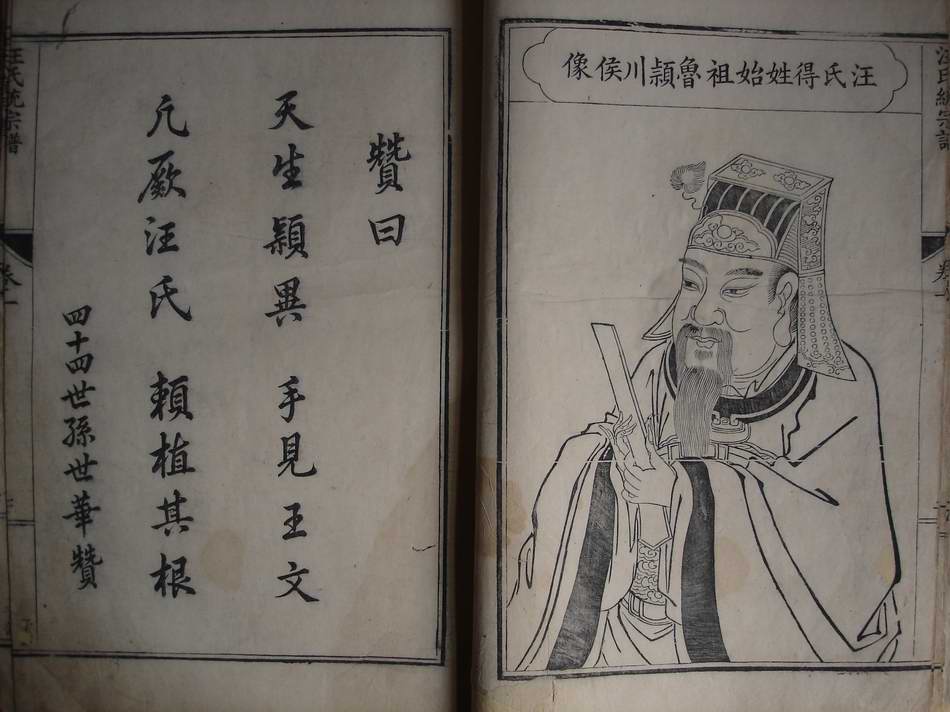 汪氏得姓始祖魯潁川侯像
贊曰
天生潁異 手見王文
亢厥汪氏 賴植其根
四十四世孫世華贊
汪氏統宗譜
卷一